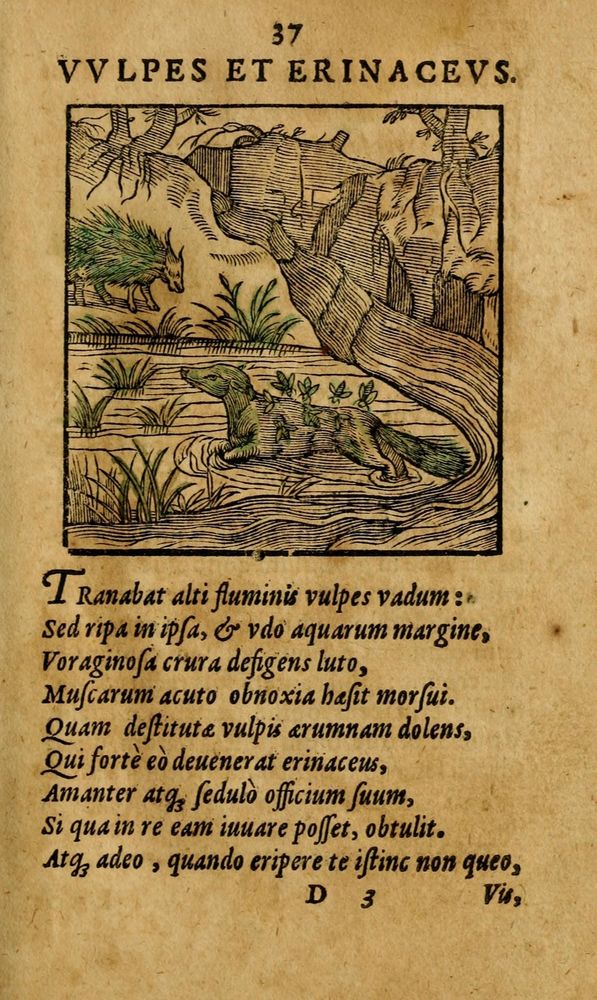 37
VVLPES ET ERINACEVS.
TRanabat alti fluminis vulpes vadum:
Sed ripa in ipſa, & vdo aquarum margine,
Voraginoſa crura defigens luto,
Muſcarum acuto obnoxia hæſit morſui.
Quam deſtitutæ vulpis ærumnam dolens,
Qui fortè eò deuenerat erinaceus,
Amanter atq; ſedulò officium ſuum,
Si qua in re eam iuuare poſſet, obtulit.
Atq; adeo, quando eripere te iſtinc non queo,
D 3 Vis,